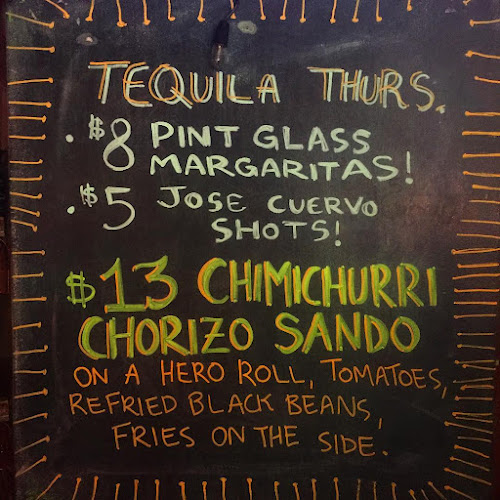 TEQUILA THURS.
· $8 PINT GLASS
MARGARITAS!
· $5 JOSE CUERVO
SHOTS!
$13 CHIMICHURRI
CHORIZO SANDO
ON A HERO ROLL, TOMATOES,
REFRIED BLACK BEANS,
FRIES ON THE SIDE.